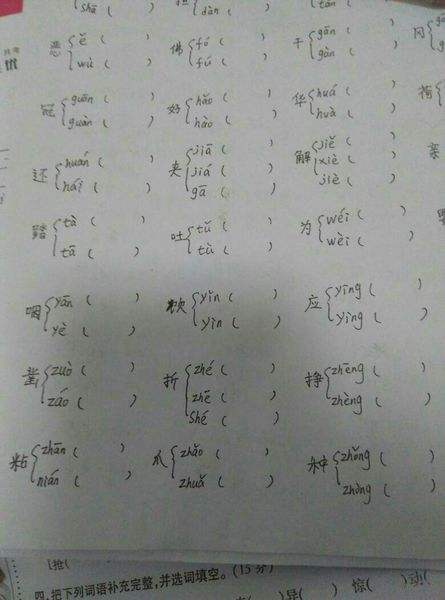 shā (    ) dàn (    ) tán (
恶 ě (    ) 佛 fó (    ) 干 gān (    ) 冈
wù (    ) fú (    ) gàn (    )
冠 guān (    ) 好 hǎo (    ) 华 huá (    )
guàn (    ) hào (    ) huà (    )
还 huán (    ) 夹 jiā (    ) 解 jiě (    ) 亲
hái (    ) jiá (    ) xiè (    )
gā (    ) jiè (    )
踏 tà (    ) 吐 tǔ (    ) 为 wéi (    )
tā (    ) tù (    ) wèi (    )
咽 yān (    ) 饮 yǐn (    ) 应 yīng (
yè (    ) yìn (    ) yìng (    )
凿 zuò (    ) 折 zhé (    ) 挣 zhēng (    )
záo (    ) zhē (    ) zhèng (    )
shé (    )
粘 zhān (    ) 爪 zhǎo (    ) 种 zhǒng (    )
nián (    ) zhuǎ (    ) zhòng (    )
[抢(
四、把下列词语补充完整,并选词填空。(15分)
)异( 惊( )动(